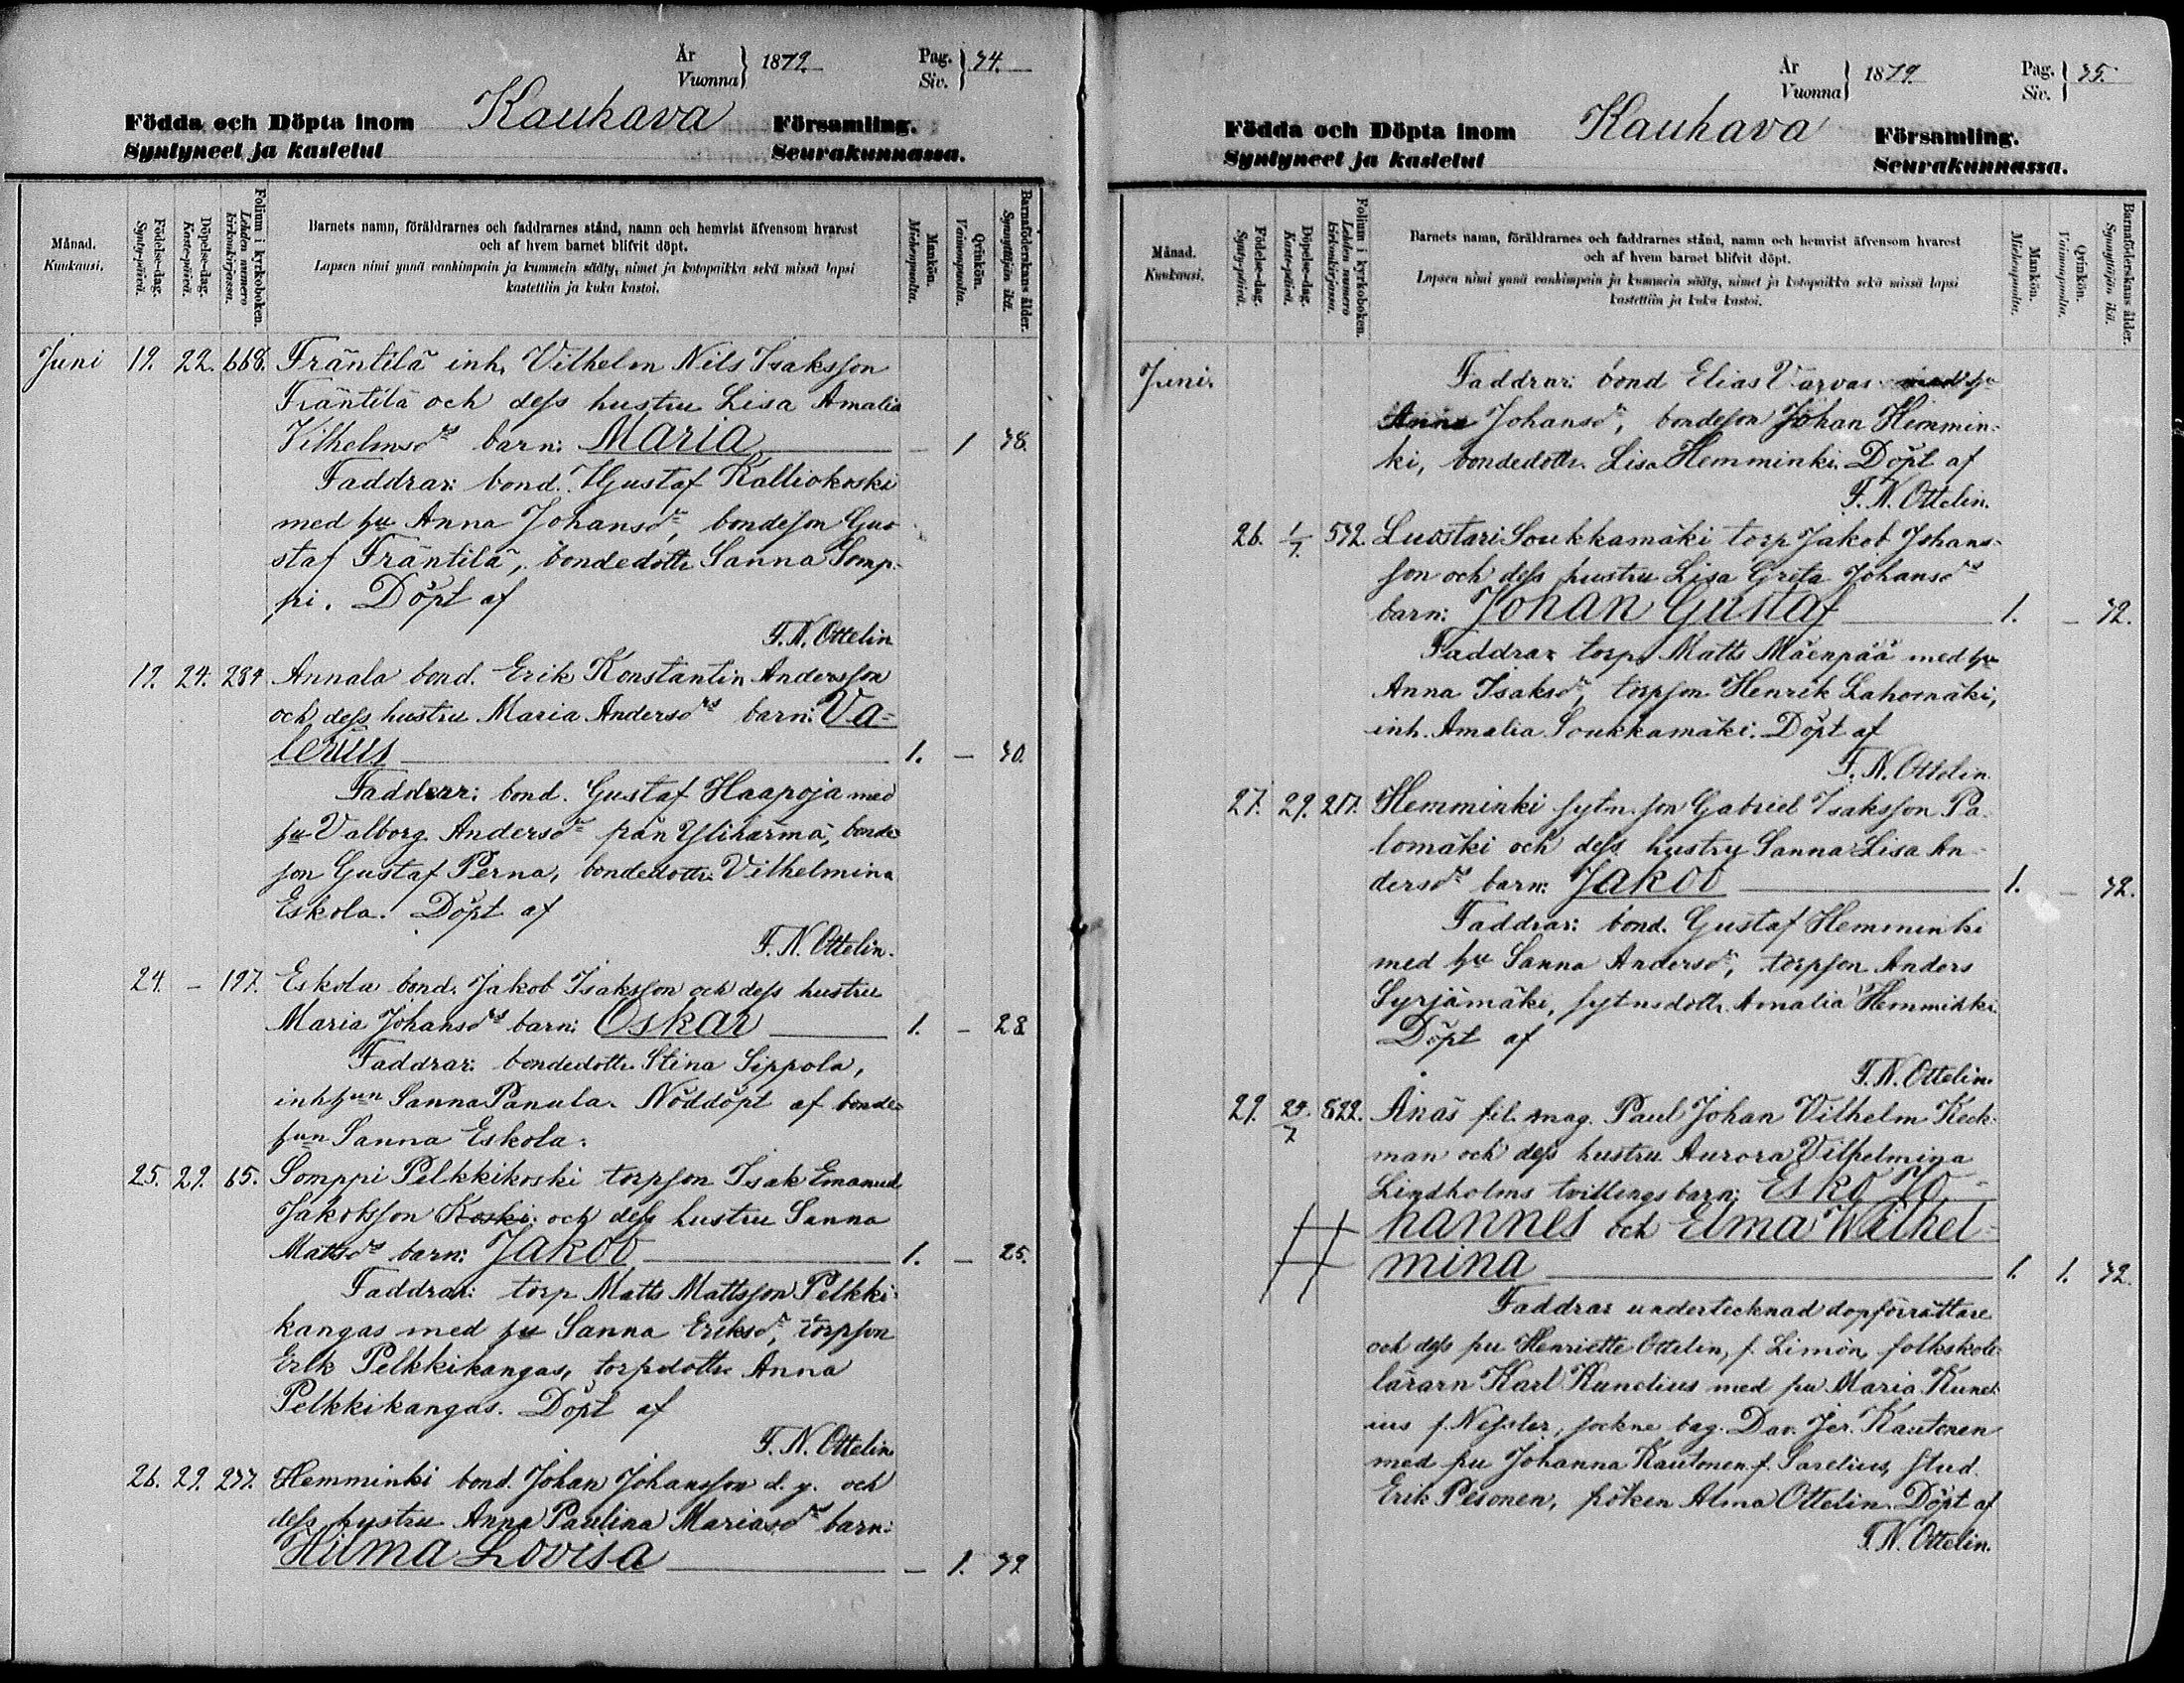 År
Vuonna } 1879.
Pag.
Siv. } 34.
Födda och Döpta inom Kauhava Församling.
Syntyneet ja kastetut Seurakunnassa.
Månad.
Kuukausi.
Födelse-dag.
Synty-päivä.
Döpelse-dag.
Kaste-päivä.
Folium i kyrkoboken.
Lehden numero kirkonkirjassa.
Barnets namn, föräldrarnes och faddrarnes stånd, namn och hemvist äfvensom hvarest
och af hvem barnet blifvit döpt.
Lapsen nimi ynnä vanhimpain ja kummein sääty, nimet ja kotopaikka sekä missä lapsi
kastettiin ja kuka kastoi.
Mankön.
Miehenpuolta.
Qvinkön.
Vaimonpuolta.
Barnaföderskans ålder.
Synnyttäjän ikä.
Juni 19. 22. 668. Fräntilä inh. Vilhelm Nils Isaksson
Fräntilä och dess hustru Lisa Amalia
Vilhelmsdrs barn: Maria — 1 38.
Faddrar: bond. Gustaf Kalliokoski
med hu Anna Johansdr, bondeson Gus
staf Fräntilä, bondedottr Sanna Somp-
pi. Döpt af
F. N. Ottelin
19. 24. 284 Annala bond. Erik Konstantin Andersson
och dess hustru Maria Andersdrs barn: Va-
lerius 1. — 30.
Faddrar: bond. Gustaf Haapoja med
hu Valborg Andersdr från Ylihärmä, bonde-
son Gustaf Perna, bondedottr Vilhelmina
Eskola. Döpt af
F. N. Ottelin.
24. — 197. Eskola bond. Jakob Isaksson och dess hustru
Maria Johansdrs barn: Oskar 1. — 28
Faddrar: bondedottr. Stina Sippola,
inhhun Sanna Panula. Nöddöpt af bonde-
hun Sanna Eskola.
25. 29. 65. Somppi Pelkkikoski torpson Isak Emanuel
Jakobsson Koski och dess hustru Sanna
Mattsdrs barn: Jakob 1. — 25.
Faddrar: torp Matts Mattsson Pelkki-
kangas med hu Sanna Eriksdr, torpson
Erik Pelkkikangas, torpdottr Anna
Pelkkikangas. Döpt af
F. N. Ottelin
26. 29. 237. Hemminki bond. Johan Johansson d. y. och
dess hustru Anna Paulina Mariasdrs barn:
Hilma Lovisa — 1. 39.
År
Vuonna } 1879.
Pag.
Siv. } 35.
Födda och Döpta inom Kauhava Församling.
Syntyneet ja kastetut Seurakunnassa.
Månad.
Kuukausi.
Födelse-dag.
Synty-päivä.
Döpelse-dag.
Kaste-päivä.
Folium i kyrkoboken.
Lehden numero kirkonkirjassa.
Barnets namn, föräldrarnes och faddrarnes stånd, namn och hemvist äfvensom hvarest
och af hvem barnet blifvit döpt.
Lapsen nimi ynnä vanhimpain ja kummein sääty, nimet ja kotopaikka sekä missä lapsi
kastettiin ja kuka kastoi.
Mankön.
Miehenpuolta.
Qvinkön.
Vaimonpuolta.
Barnaföderskans ålder.
Synnyttäjän ikä.
Juni. Faddrar: bond Elias Varvas med hu
Anna Johansdr, bondeson Johan Hemmin-
ki, bondedottr. Lisa Hemminki. Döpt af
F. N. Ottelin.
26. 1/7 532 Luostari Soukkamäki torp Jakob Johans-
son och dess hustru Lisa Greta Johansdrs
barn: Johan Gustaf 1. — 32.
Faddrar torp. Matts Mäenpää med hu
Anna Isaksdr, torpson Henrik Lahomäki,
inh. Amalia Soukkamäki. Döpt af
F. N. Ottelin
27. 29. 217. Hemminki sytn. son Gabriel Isaksson Pa-
lomäki och dess hustru Sanna Lisa An-
dersdrs barn: Jakob 1. — 32.
Faddrar: bond. Gustaf Hemminki
med hu Sanna Andersdr, torpson Anders
Syrjämäki, sytnsdottr. Amalia Hemminki.
Döpt af
F. N. Ottelin.
29. 24/7 822. Ånäs fil. mag. Paul Johan Vilhelm Keck-
man och dess hustru Aurora Vilhelmina
Lindholms tvillingsbarn: Esko Jo-
hannes och Elma Wilhel-
mina 1. 1. 32.
Faddrar undertecknad dopförrättare
och dess fru Henriette Ottelin, f. Limòn, folkskole-
lärarn Karl Kunelius med fru Maria Kunel-
ius f. Nessler, sockne bag. Dav. Jer. Kautonen
med fru Johanna Kautonen f. Sarelius, stud.
Erik Pesonen, fröken Alma Ottelin. Döpt af
F. N. Ottelin.